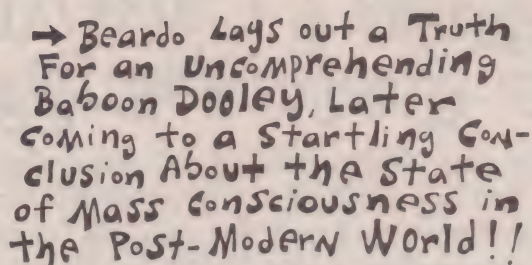 → Beardo Lays out a Truth
For an Uncomprehending
Baboon Dooley, Later
Coming to a Startling Con-
clusion About the State
of Mass Consciousness in
the Post-Modern World!!